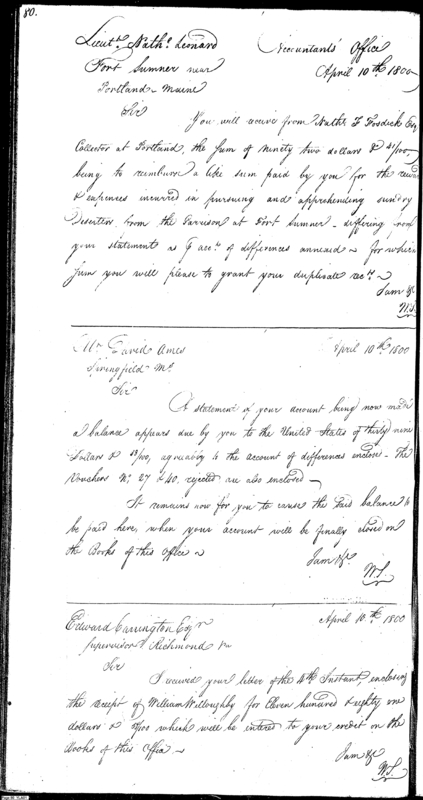 80.
Lieut. Nath. Leonard Accountants Office
Fort Sumner near April 10th 1800
Portland - Maine
Sir
You will receive from Nathl F Fosdick Esq
Collector at Portland, the sum of ninety two dollars &
being to reimburse a like sum paid by you for the
& expences incurred in pursuing and apprehending sundry
Deserters from the Garrison at Fort Sumner - differing from
your statements as acct of differences annexed - for which
sum you will please to grant your duplicate
I am &c
W.S.
Mr David Ames April 10th 1800
Springfield Ms
Sir
A statement of your account being now made
a balance appears due by you to the United States of thirty nine
Dollars & agreeably to the account of differences enclosed - The
Vouchers No 27 & 40. rejected are also enclosed -
It remains now for you to cause the said balance to
be paid here, when your account will be finally closed on
the Books of this Office -
I am &c
W.S.
Edward Carrington Esqr April 10th 1800
Supervisor Richmond Va
Sir
I received your letter of the 4th Instant, enclosing
the receipt of William Willoughby for Eleven hundred & eighty one
dollars & which will be entered to your credit on the
Books of this Office -
I am &c
W.S.